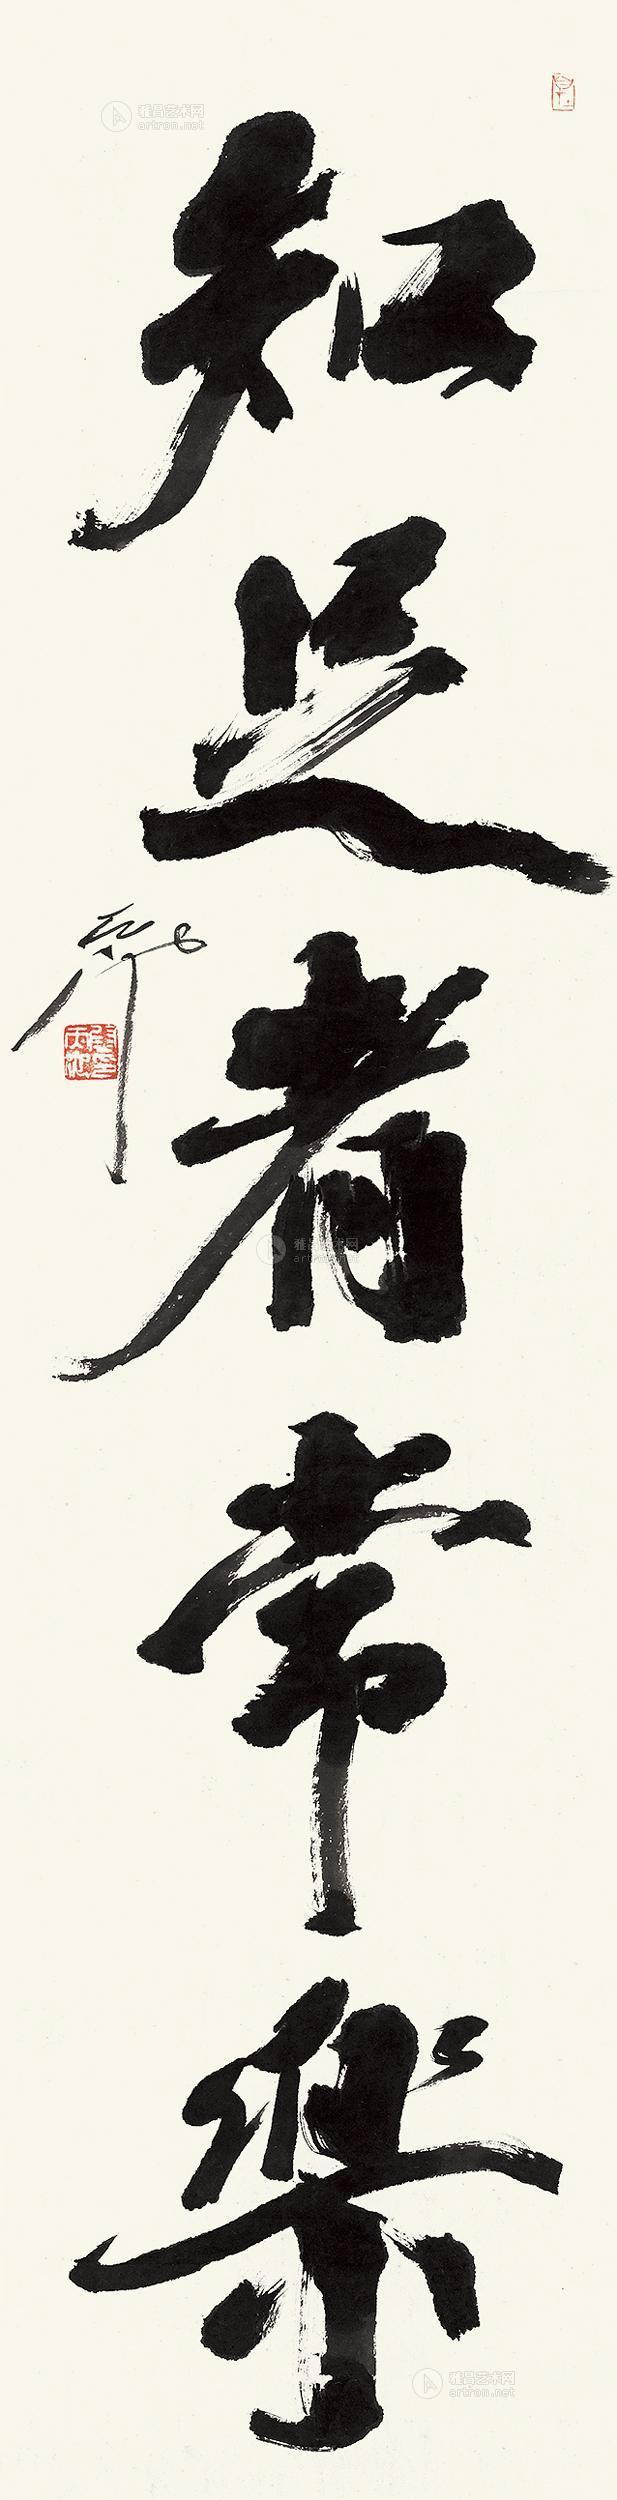 知足者常樂
雅昌艺术网
artron.net
雅昌艺术网
artron.net
雅昌艺术网
artron.net